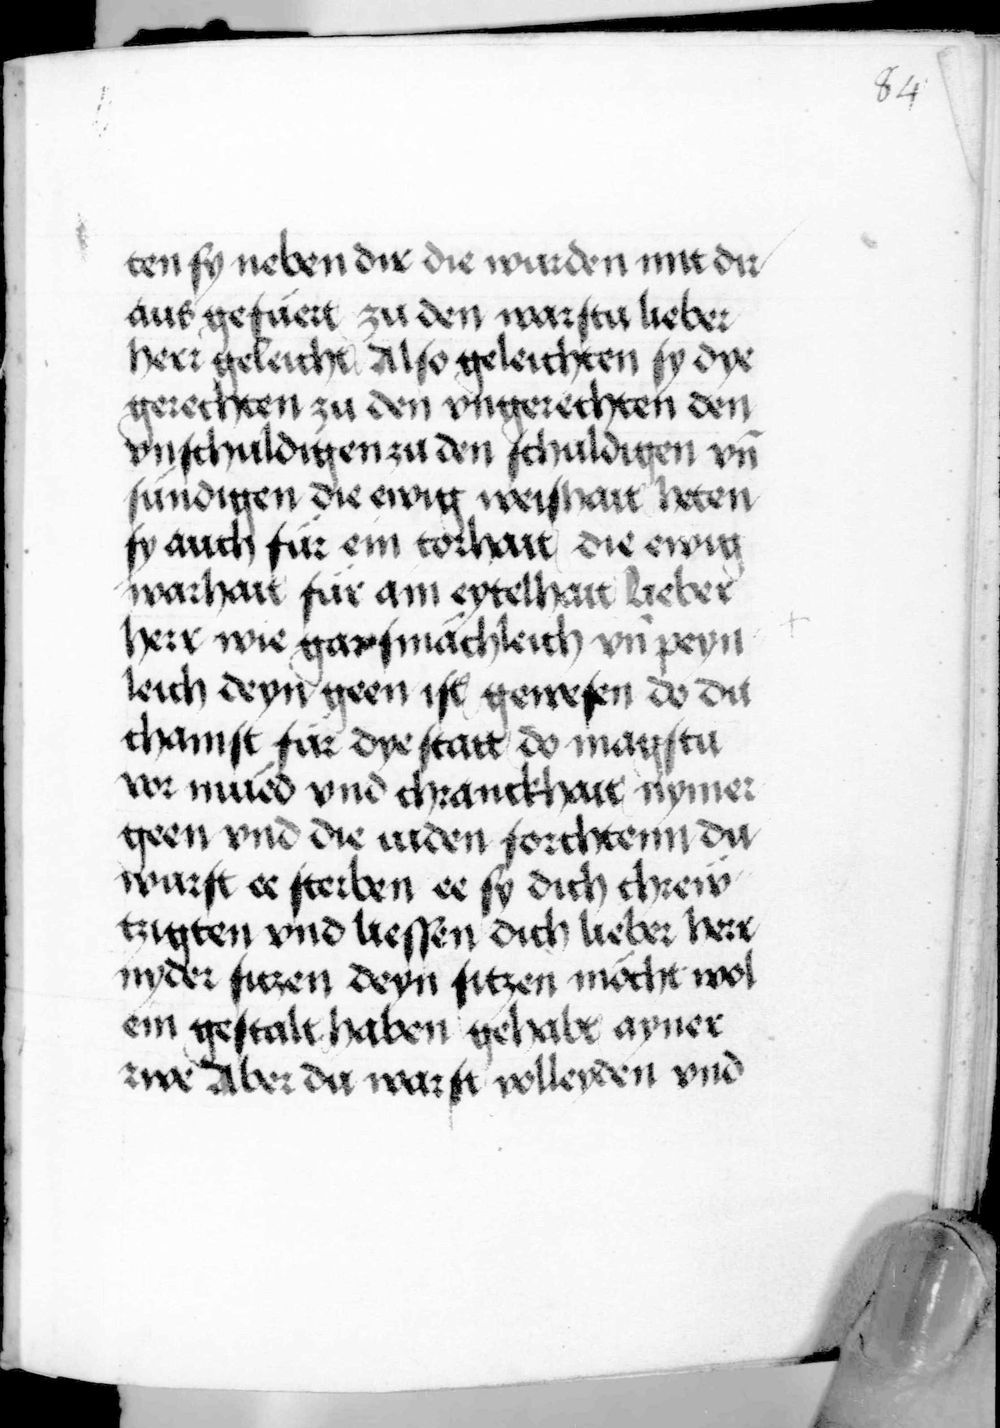 84
ten sy neben dir die wurden mit dir
aus gefüert zu den warstu lieber
herr geleicht Also geleichten sy dye
gerechten zu den vngerechten den
vnschuldigen zu den schuldigen vn̄
sündigen die ewig weishait heten
sy auch für ein torhait die ewig
warhait für ain eytelhait Lieber
herr wie gar smächleich vn̄ peyn
leich deyn geen ist gewesen do du
chamst für dye statt do magstu
vor müed vnd chranckhait nymer
geen vnd die iuden forchtenn du
wurst ee sterben ee sy dich chrew
tzigten vnd liessen dich lieber herr
nyder sitzen deyn sitzen möcht wol
ein gestalt haben gehabt ayner
rwe Aber du warst volleyden vnd